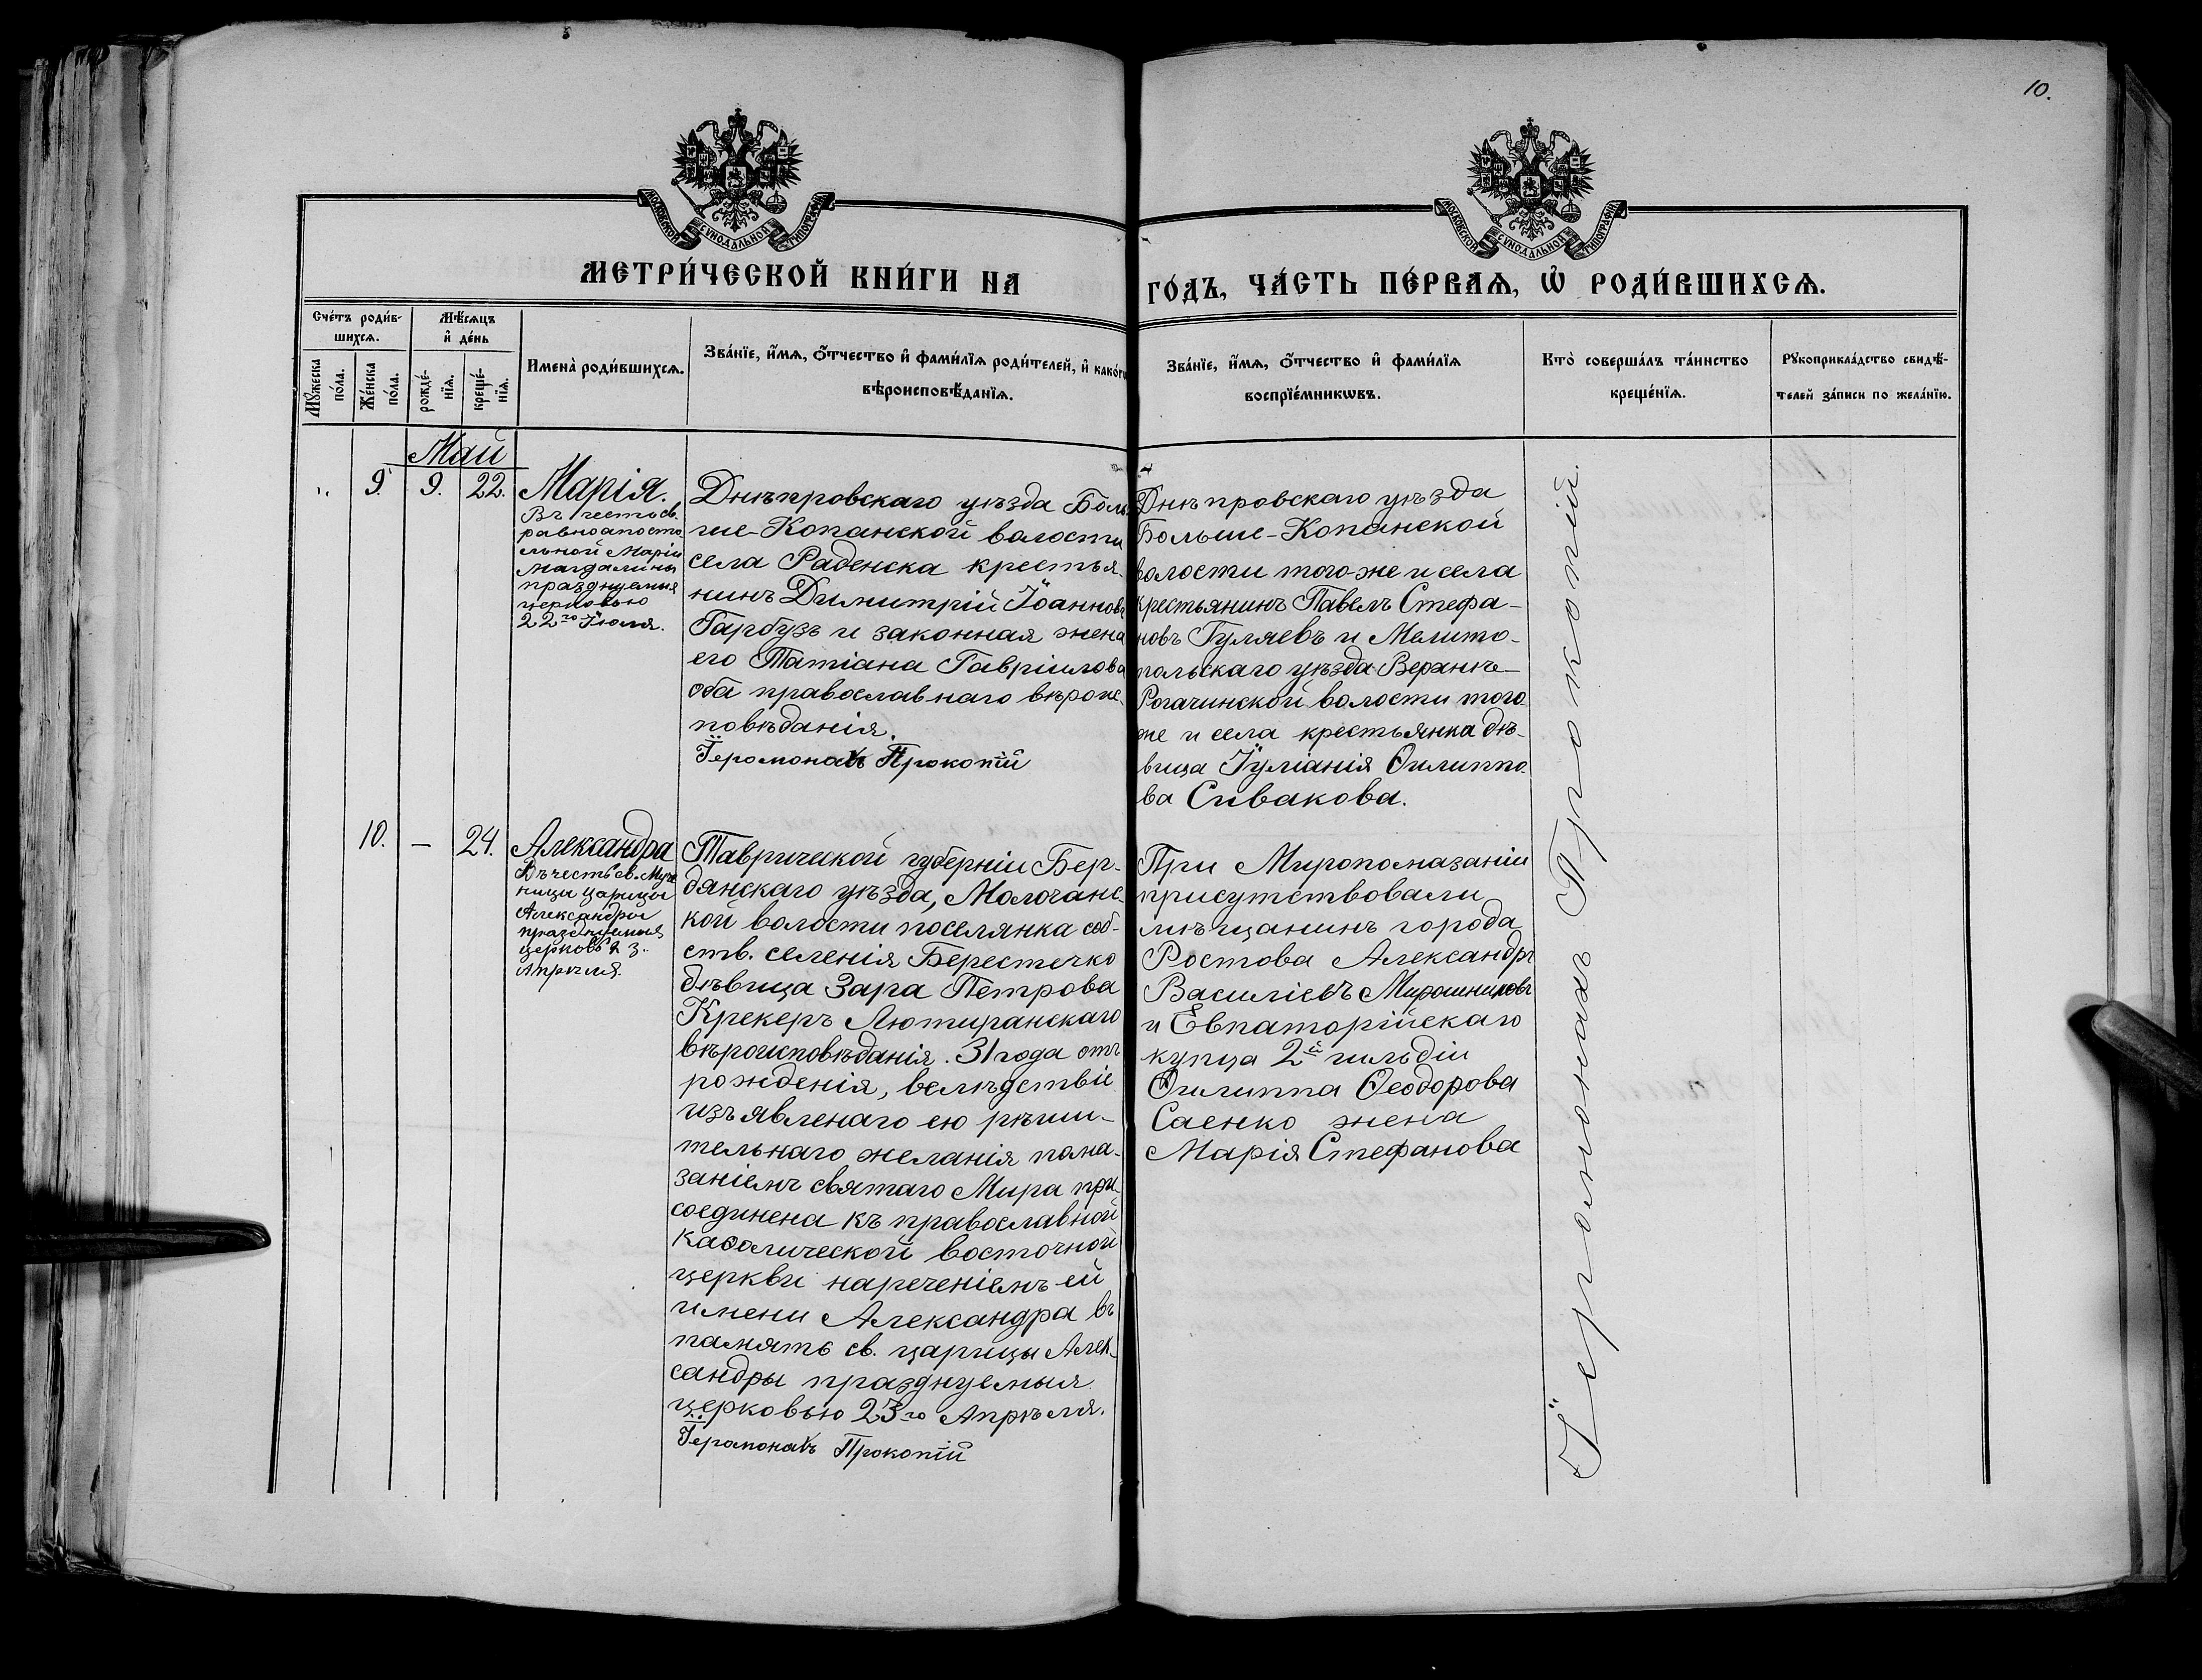 10.
МОСКОВСКОЙ СѴНОДАЛЬНОЙ ТИПОГРАФІИ
МОСКОВСКОЙ СѴНОДАЛЬНОЙ ТИПОГРАФІИ
МЕТРИ́ЧЕСКОЙ КНИ́ГИ НА
ГО́ДЪ, ЧА́СТЬ ПЕ́РВАѦ, Ѡ҆ РОДИ́ВШИХСѦ.
Сче́тъ роди́в-
шихсѧ.
Мꙋ́жеска
по́ла.
Же́нска
по́ла.
Мѣ́сѧцъ
и҆ де́нь
рожде́-
нїѧ.
креще́-
нїѧ.
Имена̀ роди́вшихсѧ.
Зва́нїе, и҆́мѧ, ѻ҆́тчество и҆ фами́лїѧ роди́телей, и҆ како́гѡ
вѣроисповѣ́данїѧ.
Зва́нїе, и҆́мѧ, ѻ҆́тчество и҆ фами́лїѧ
воспрїе́мникѡвъ.
Кто̀ соверша́лъ та́инство
креще́нїѧ.
Рꙋкоприкла́дство свидѣ́-
телей за́писи по жела́нїю.
Май
9. 9. 22.
Марія.
Въ честь св.
равноапосто
льной Маріи
Магдалины
празднуемыя
церковью
22го Іюля.
Днѣпровскаго уѣзда Боль
ше-Копанской волости
села Раденска крестья-
нинъ Димитрій Іоанновъ
Гарбузъ и законная жена
его Татіана Гавріилова
оба православнаго вѣроис-
повѣданія.
Іеромонахъ Прокопій
Днѣпровскаго уѣзда
Больше-Копанской
волости того-же и села
крестьянинъ Павелъ Стефа-
новъ Гуляевъ и Мелито-
польскаго уѣзда Верхнѣ-
Рогачинской волости того
же и села крестьянка дѣ-
вица Іуліанія Ѳилиппо-
ва Сивакова.
Іеромонахъ Прокопій.
10. — 24.
Александра
Въ честь св. Муче
ницы Царицы
Александры
празднуемыя
церковью 23..
Апрѣля.
Таврической губерніи Бер-
дянскаго уѣзда, Молочанс-
кой волости поселянка соб-
ств. селенія Берестечко
дѣвица Зара Петрова
Крекеръ Лютиранскаго
вѣроисповѣданія. 31 года отъ
рожденія, вслѣдствіе
изъявленаго ею рѣши-
тельнаго желанія пома-
заніемъ святаго Мира при-
соединена къ православной
каѳолической восточной
церкви нареченіемъ ей
имени Александра въ
память св. царицы Алек-
сандры празднуемыя
церковью 23го Апрѣля.
Іеромонахъ Прокопій
При Миропомазаніи
присутствовали
мѣщанинъ города
Ростова Александръ
Василіевъ Мирошниковъ
и Евпаторійскаго
купца 2й гильдіи
Ѳилиппа Ѳеодорова
Саенко жена
Марія Стефанова